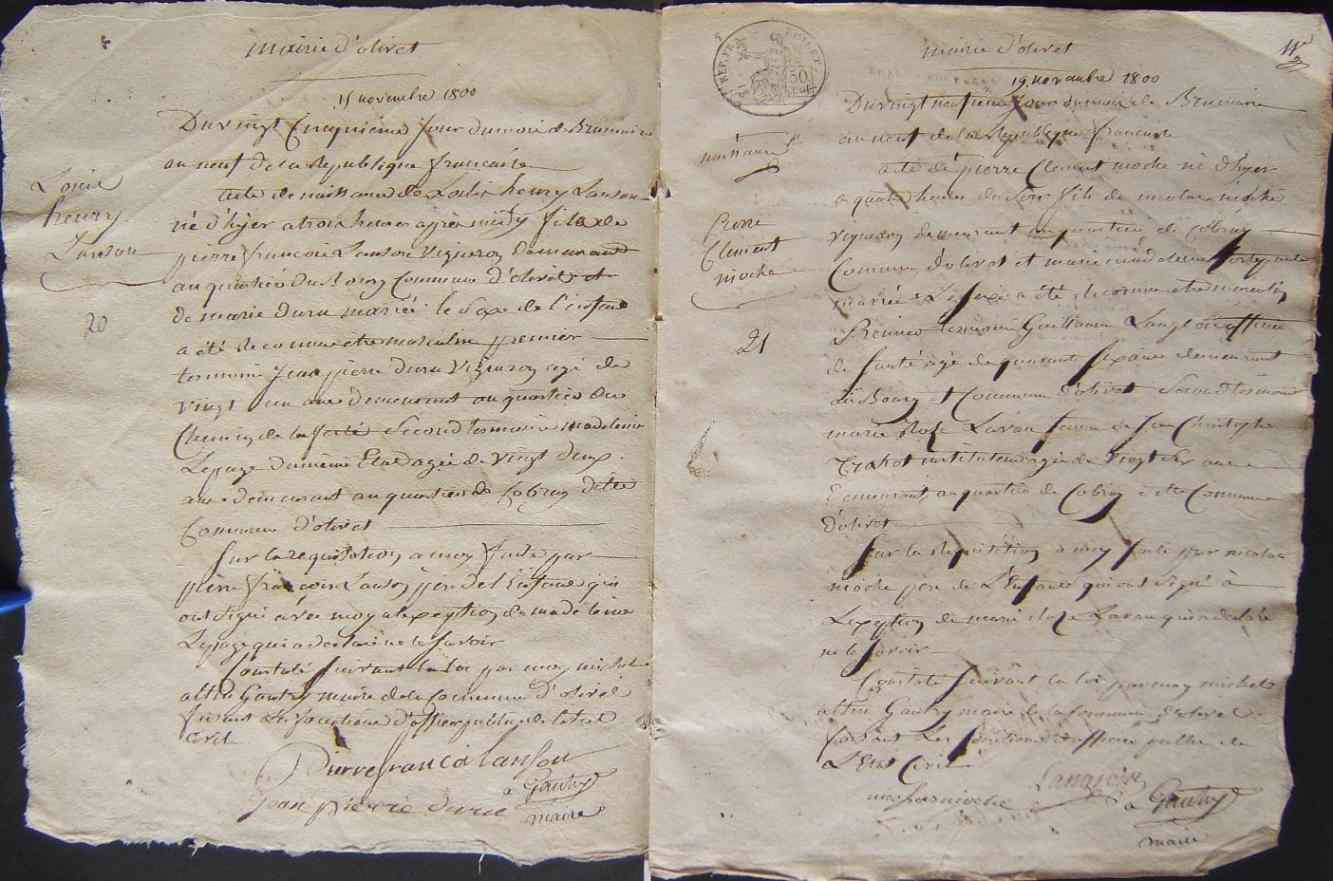 Mairie d'olivet
15 novembre 1800
Du vingt Cinquieme Jour du mois de Brumaire
an neuf de la Republique francaise
acte de naissance de Louis henry Lanson
né d'hyer a trois heures après midy fils de
pierre francois Lanson Vigneron demeurant
au quartié du Commune d'olivet et
de marie duru mariés le Sexe de l'enfant
a été reconnu etre masculin premier
temoin Jean pierre duru Vigneron agé de
Vingt un ans demeurant au quartier du
Chemin de la ferté Second temoin madeleine
Lepage du meme Etat agée de Vingt deux
ans demeurant au quartier de Cobray dette
Commune d'olivet
Sur la requisition a moy faite par
pierre francois Lanson pere de l'Enfant qui
ont signé avec moy a l'exeption de madeleine
Lepage qui a declaré ne le savoir
Constaté Suivant la loi par moy michel
altin Gautry maire de la Commune d'olivet
faisant les fonctions d'officier public de l'etat
Civil
Pierre francois lanson
Jean pierre duru
Gautry
maire
Louis
henry
Lanson
20
Mairie d'olivet
19 novembre 1800
Du vingt neuvieme Jour du mois de Brumaire
an neuf de la Republique francaise
acte de pierre Clement mioche né d'hyer
a quatre heures du Soir fils de nicolas mioche
Vigneron demeurant au quartier de Cobray
Commune d'olivet et marie
mariés Le Sexe a été reconnu etre masculin
Premier temoin Guillaume officier
de Santé agé de quarante Six ans demeurant
au Bourg et Commune d'olivet Second temoin
marie Rose Lavau femme de Jean Christophe
instituteur agée de Vingt Six ans
demeurant au quartier de Cobray dette Commune
d'olivet
Sur la requisition a moy faite par nicolas
mioche pere de L'Enfant qui ont signé à
L'exeption de marie Roze Lavau qui a declaré
ne le Savoir
Constaté Suivant la loi par moy michel
altin Gautry maire de la Commune d'olivet
faisant Les fonctions d'officier public de
L'Etat Civil
mioche
Gautry
maire
naissance
Pierre
Clement
mioche
21